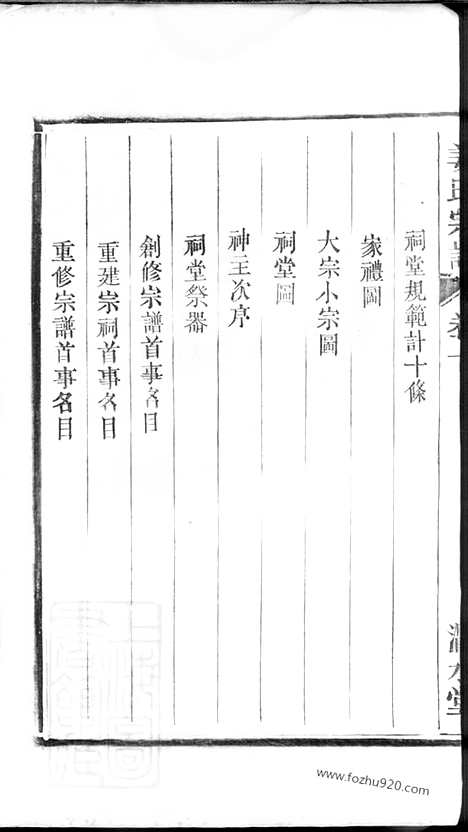 祠堂規範計十條
家禮圖
大宗小宗圖
祠堂圖
神主次序
祠堂祭器
創修宗譜首事名目
重建宗祠首事名目
重修宗譜首事名目
www.fozhu920.com